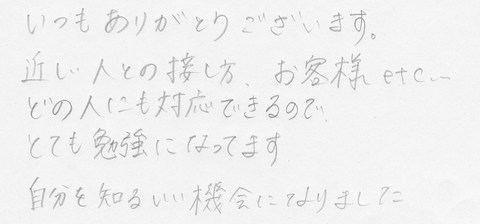 いつもありがとうございます。
近しい人との接し方、お客様etc...
どの人にも対応できるので、
とても勉強になってます
自分を知るいい機会になりました